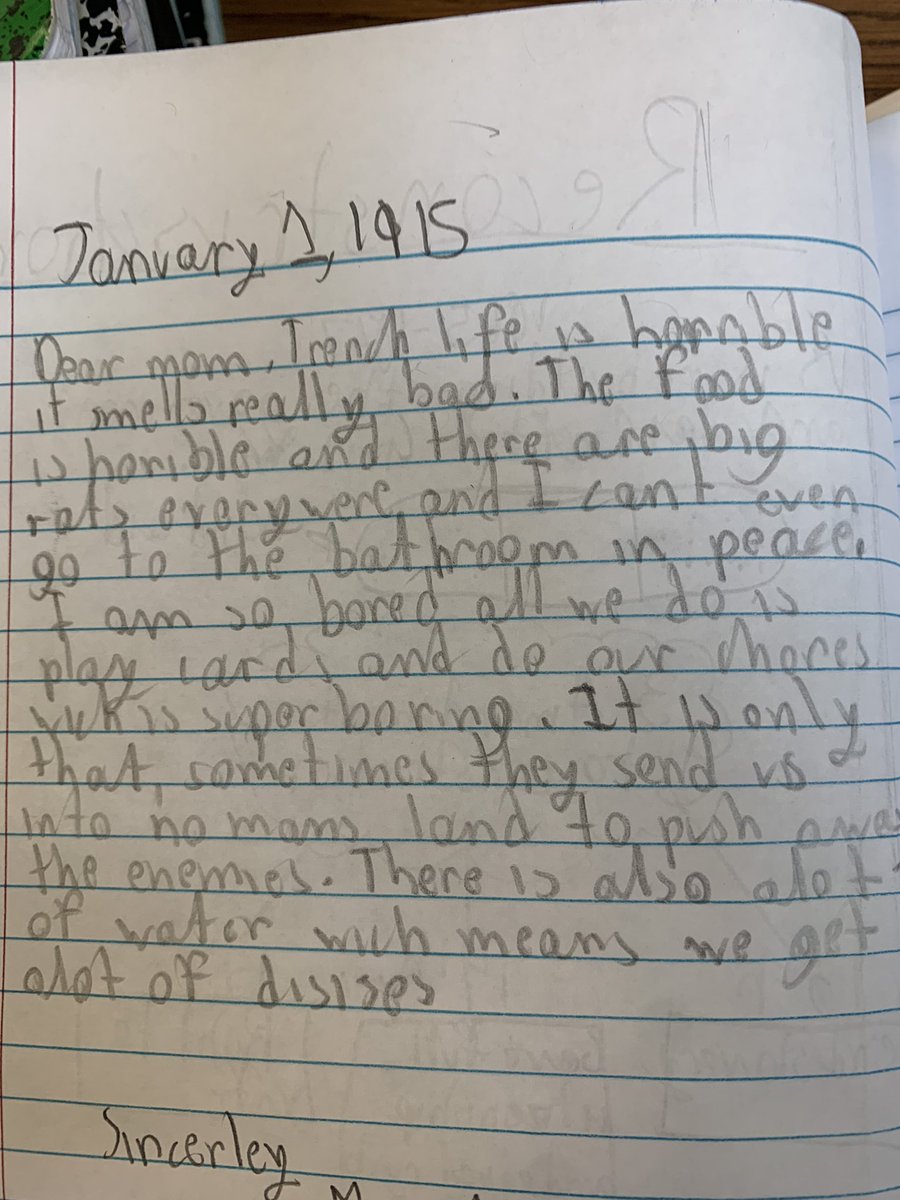 January 1, 1915
Dear mom, Trench life is horrible
it smells really bad. The food
is horible and there are big
rats everywere and I cant even
go to the bathroom in peace.
I am so bored all we do is
play cards and do our chores
wich is super boring. It is only
that sometimes they send us
into no mans land to push away
the enemies. There is also alot
of water wich means we get
alot of disises
Sincerley